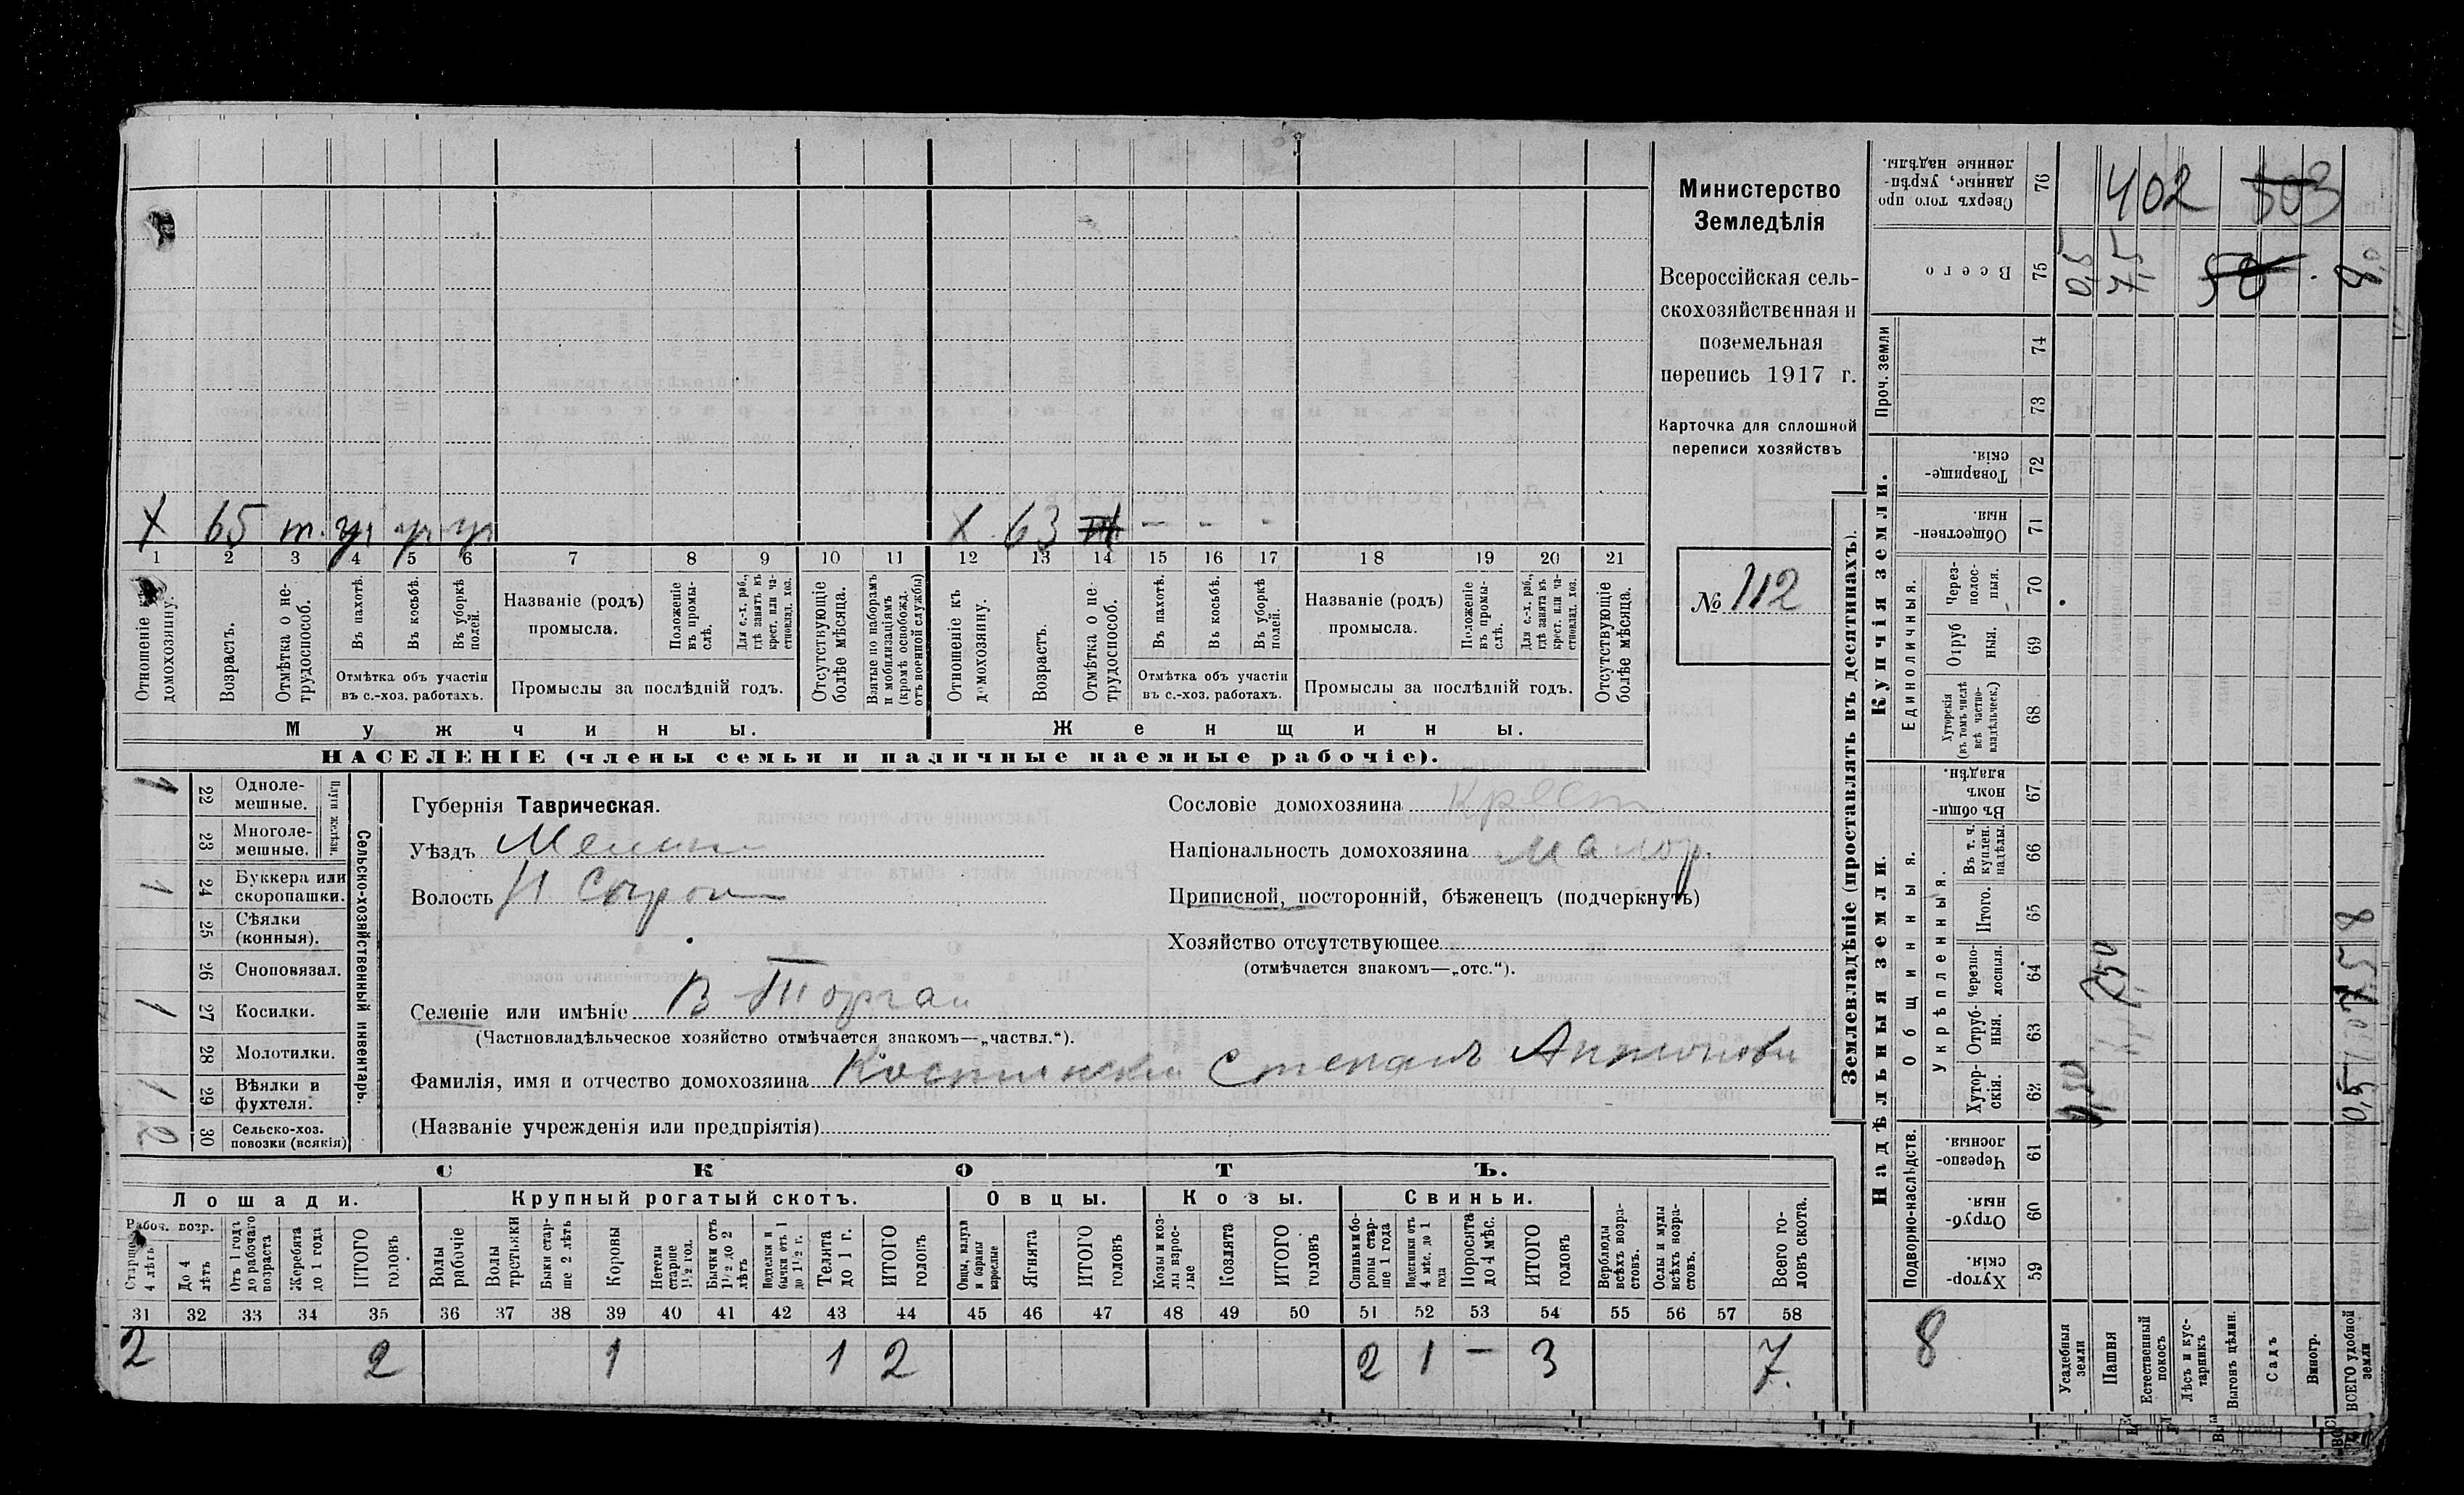 Министерство
Земледѣлія
Всероссійская сель-
скохозяйственная и
поземельная
перепись 1917 г.
Карточка для сплошной
переписи хозяйствъ
№ 112
X 65 т. ур ур ур
X 63 – – –
1 2 3 4 5 6 7 8 9 10 11 12 13 14 15 16 17 18 19 20 21
Отношеніе къ домохозяину.
Возрастъ.
Отмѣтка о не-трудоспособ.
Въ пахотѣ.
Въ косьбѣ.
Въ уборкѣ полей.
Отмѣтка объ участіи
въ с.-хоз. работахъ.
Названіе (родъ)
промысла.
Положеніе въ промы-слѣ.
Для с.-х. раб., гдѣ занятъ въ крест. или ча-стновлад. хоз.
Промыслы за послѣдній годъ.
Отсутствующіе болѣе мѣсяца.
Взятые по наборамъ и мобилизаціямъ (кромѣ освобожд. отъ военной службы)
Отношеніе къ домохозяину.
Возрастъ.
Отмѣтка о не-трудоспособ.
Въ пахотѣ.
Въ косьбѣ.
Въ уборкѣ полей.
Отмѣтка объ участіи
въ с.-хоз. работахъ.
Названіе (родъ)
промысла.
Положеніе въ промы-слѣ.
Для с.-х. раб., гдѣ занята въ крест. или ча-стновлад. хоз.
Промыслы за послѣдній годъ.
Отсутствующіе болѣе мѣсяца.
Мужчины. Женщины.
НАСЕЛЕНІЕ (члены семьи и наличные наемные рабочіе).
Сельско-хозяйственный инвентарь.
Плуги желѣзн.
1 22 Одноле-мешные.
23 Многоле-мешные.
1 24 Буккера или скоропашки.
25 Сѣялки (конныя).
26 Сноповязал.
1 27 Косилки.
28 Молотилки.
1 29 Вѣялки и фухтеля.
2 30 Сельско-хоз. повозки (всякія)
Губернія Таврическая.
Уѣздъ Мелит
Волость
Селеніе или имѣніе В Торгаи
(Частновладѣльческое хозяйство отмѣчается знакомъ—„частвл.“).
Фамилія, имя и отчество домохозяина Степанъ Антонови
(Названіе учрежденія или предпріятія)
Сословіе домохозяина Крест
Національность домохозяина Малор.
Приписной, посторонній, бѣженецъ (подчеркнуть)
Хозяйство отсутствующее
(отмѣчается знакомъ—„отс.“).
СКОТЪ.
Лошади. Крупный рогатый скотъ. Овцы. Козы. Свиньи.
Рабоч. возр.
Старше 4 лѣтъ
До 4 лѣтъ
Отъ 1 года до рабочаго возраста
Жеребята до 1 года
ИТОГО головъ
Волы рабочіе
Волы третьяки
Быки стар-ше 2 лѣтъ
Коровы
Нетели старше 1½ год.
Бычки отъ 1½ до 2 лѣтъ
Подтелки и бычки отъ 1 до 1½ г.
Телята до 1 г.
ИТОГО головъ
Овцы, валухи и бараны взрослые
Ягнята
ИТОГО головъ
Козы и коз-лы взрос-лые
Козлята
ИТОГО головъ
Свиньи и бо-ровы стар-ше 1 года
Подсвинки отъ 4 мѣс. до 1 года
Поросята до 4 мѣс.
ИТОГО головъ
Верблюды всѣхъ возра-стовъ.
Ослы и мулы всѣхъ возра-стовъ.
Всего го-ловъ скота.
31 32 33 34 35 36 37 38 39 40 41 42 43 44 45 46 47 48 49 50 51 52 53 54 55 56 57 58
2 2 1 1 2 2 1 – 3 7.
Землевладѣніе (проставлять въ десятинахъ).
Купчія земли.
Надѣльныя земли.
Сверхъ того про-данные, укрѣп-ленные надѣлы. 76 402 503
Всего 75 0,5 7,5 50 8,0
Проч. земли 74
73
Товарище-скія. 72
Обществен-ныя. 71
Единоличныя.
Через-полос-ныя. 70
Отруб-ныя. 69
Хуторскія (въ томъ числѣ всѣ частно-владѣльческ.) 68
Общинныя.
Въ общи-номъ владѣн. 67
Укрѣпленныя.
Въ т. ч. куплен. надѣлы. 66
Итого. 65
Черезпо-лосныя. 64 7,50
Отруб-ныя. 63
Хутор-скія. 62 0,50
Подворно-наслѣдств.
Черезпо-лосныя. 61
Отруб-ныя. 60
Хутор-скія. 59
8
Усадебныя земли
Пашня
Естественный покосъ
Лѣсъ и кус-тарникъ
Выгонъ цѣлин.
Садъ
Виногр.
ВСЕГО удобной земли